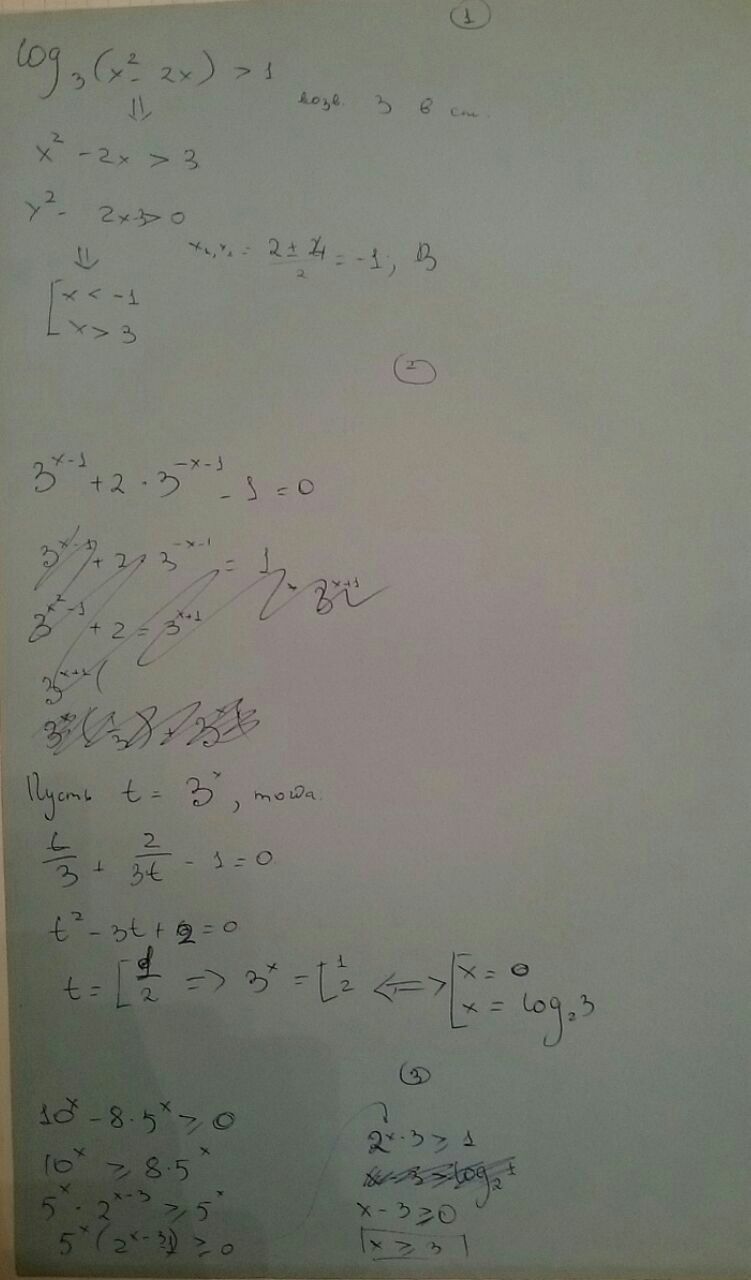 1
log₃(x² - 2x) > 1
⇓ возв. 3 в ст.
x² - 2x > 3
x² - 2x-3>0
⇓ x₁,x₂ = (2 ± 4)/2 = -1; 3
[x < -1
x > 3
2
3^(x-1) + 2 · 3^(-x-1) - 1 = 0
3^(x-1) + 2 · 3^(-x-1) = 1 | · 3^(x+1)
3^(x²-1) + 2 = 3^(x+1)
3^(x+1)(
Пусть t = 3^x, тогда
t/3 + 2/(3t) - 1 = 0
t² - 3t + 2 = 0
t = [1 2 => 3^x = [1 2 <=> [x = 0
x = log₂3
3
10^x - 8 · 5^x ≥ 0
10^x ≥ 8 · 5^x
5^x · 2^(x-3) ≥ 5^x
5^x (2^(x-3)-1) ≥ 0
2^(x-3) ≥ 1
x - 3 ≥ log₂1
x - 3 ≥ 0
x ≥ 3